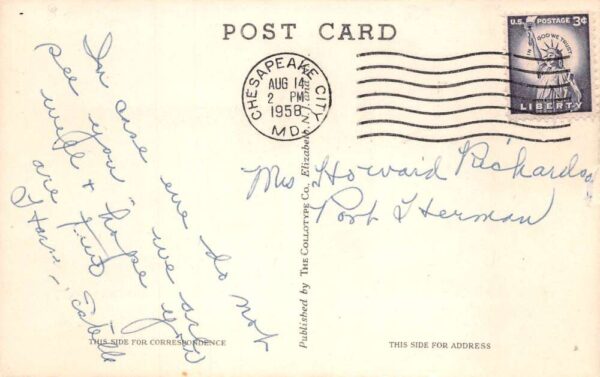 POST CARD
U.S. POSTAGE 3¢
IN GOD WE TRUST
LIBERTY
CHESAPEAKE CITY
AUG 14
2 PM
1958
MD.
In case we do not
see you "hope we are
well & hope you
are fine
Horn - Estelle
Mrs Howard Richardson
Port Herman
Published by THE COLLOTYPE Co., Elizabeth, N.J. and
THIS SIDE FOR CORRESPONDENCE
THIS SIDE FOR ADDRESS